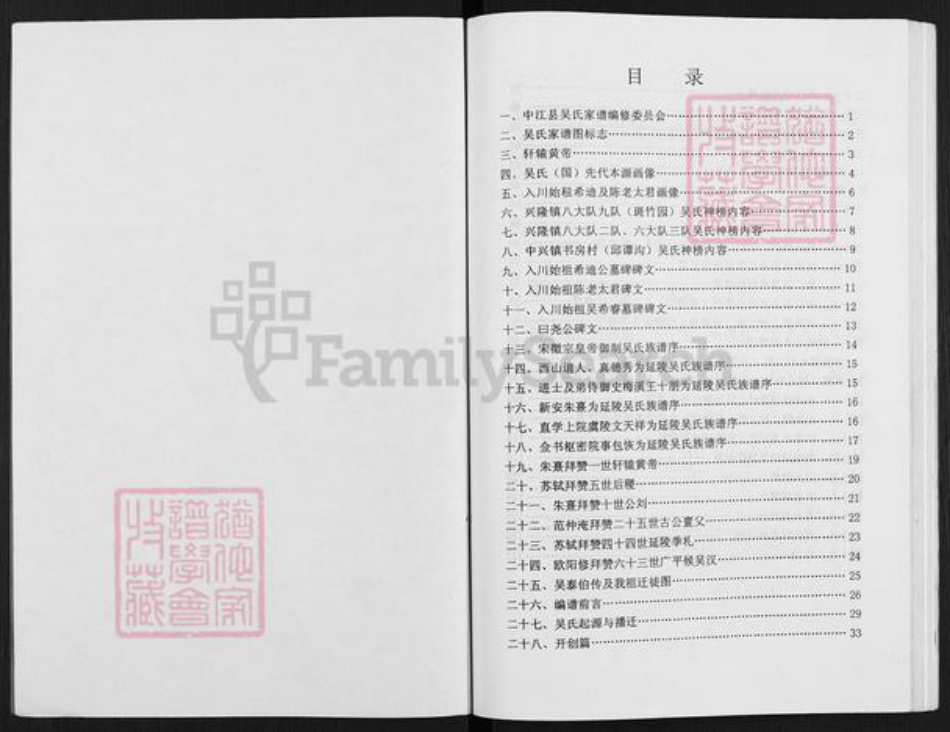 目 录
一、中江县吴氏家谱编修委员会 1
二、吴氏家谱图标志 2
三、轩辕黄帝 3
四、吴氏（国）先代本源画像 4
五、入川始祖希迪及陈老太君画像 6
六、兴隆镇八大队九队（斑竹园）吴氏神榜内容 7
七、兴隆镇八大队二队、六大队三队吴氏神榜内容 8
八、中兴镇书房村（邱谭沟）吴氏神榜内容 9
九、入川始祖希迪公墓碑碑文 10
十、入川始祖陈老太君碑文 11
十一、入川始祖吴希睿墓碑碑文 12
十二、曰尧公碑文 13
十三、宋徽宗皇帝御制吴氏族谱序 14
十四、西山道人、真德秀为延陵吴氏族谱序 15
十五、进士及弟侍御史梅溪王十朋为延陵吴氏族谱序 15
十六、新安朱熹为延陵吴氏族谱序 16
十七、直学上院虞陵文天祥为延陵吴氏族谱序 16
十八、佥书枢密院事包恢为延陵吴氏族谱序 17
十九、朱熹拜赞一世轩辕黄帝 19
二十、苏轼拜赞五世后稷 20
二十一、朱熹拜赞十世公刘 21
二十二、范仲淹拜赞二十五世古公亶父 22
二十三、苏轼拜赞四十四世延陵季札 23
二十四、欧阳修拜赞六十三世广平候吴汉 24
二十五、吴泰伯传及我祖迁徒图 25
二十六、编谱前言 26
二十七、吴氏起源与播迁 29
二十八、开创篇 33
FamilySearch
猶他家
譜學會
收藏
猶他家
譜學會
收藏